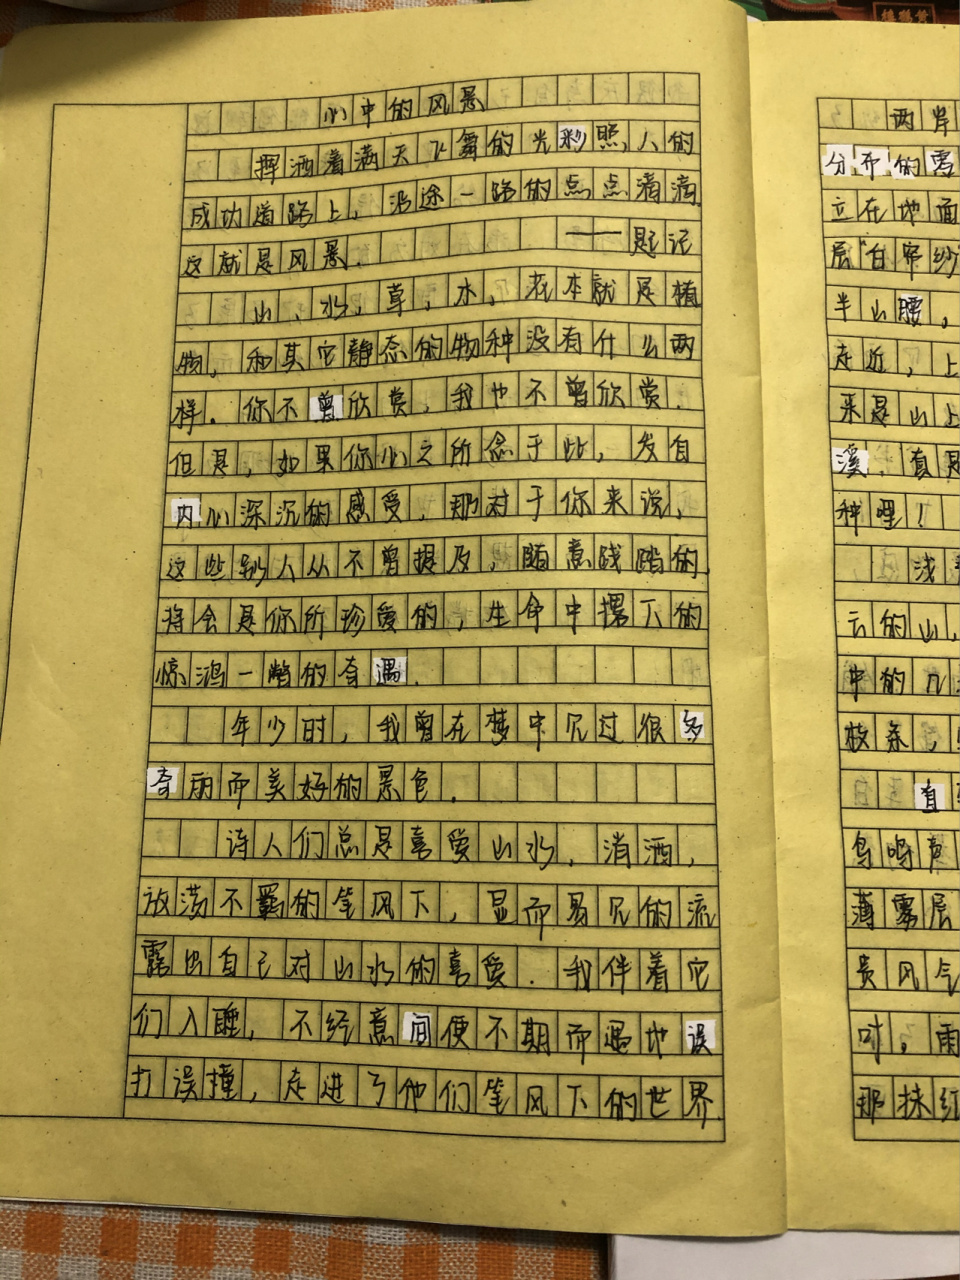 心中的风景
挥洒着满天飞舞的光彩照人的
成功道路上，沿途一路的点点滴滴
这就是风景．——题记
山、水，草，木，花本就是植
物，和其它静态的物种没有什么两
样．你不曾欣赏，我也不曾欣赏．
但是，如果你心之所念于此，发自
内心深沉的感受，那对于你来说，
这些别人从不曾提及，随意践踏的，
将会是你所珍爱的，生命中撂下的
惊鸿一瞥的奇遇．
年少时，我曾在梦中见过很多
奇丽而美好的景色．
诗人们总是喜爱山水，消洒，
放荡不羁的笔风下，显而易见的流
露出自己对山水的喜爱．我伴着它
们入睡，不经意间便不期而遇地误
打误撞，走进了他们笔风下的世界
两岸
分布的雾
立在地面
层"白帘纱
半山腰，
走近，上
来是山上
溪，真是
种哩！
浅
云的山，
中的几
枝条，
直
鸟鸣
薄雾层
贵风气
时，雨
那抹红
黄鹤楼